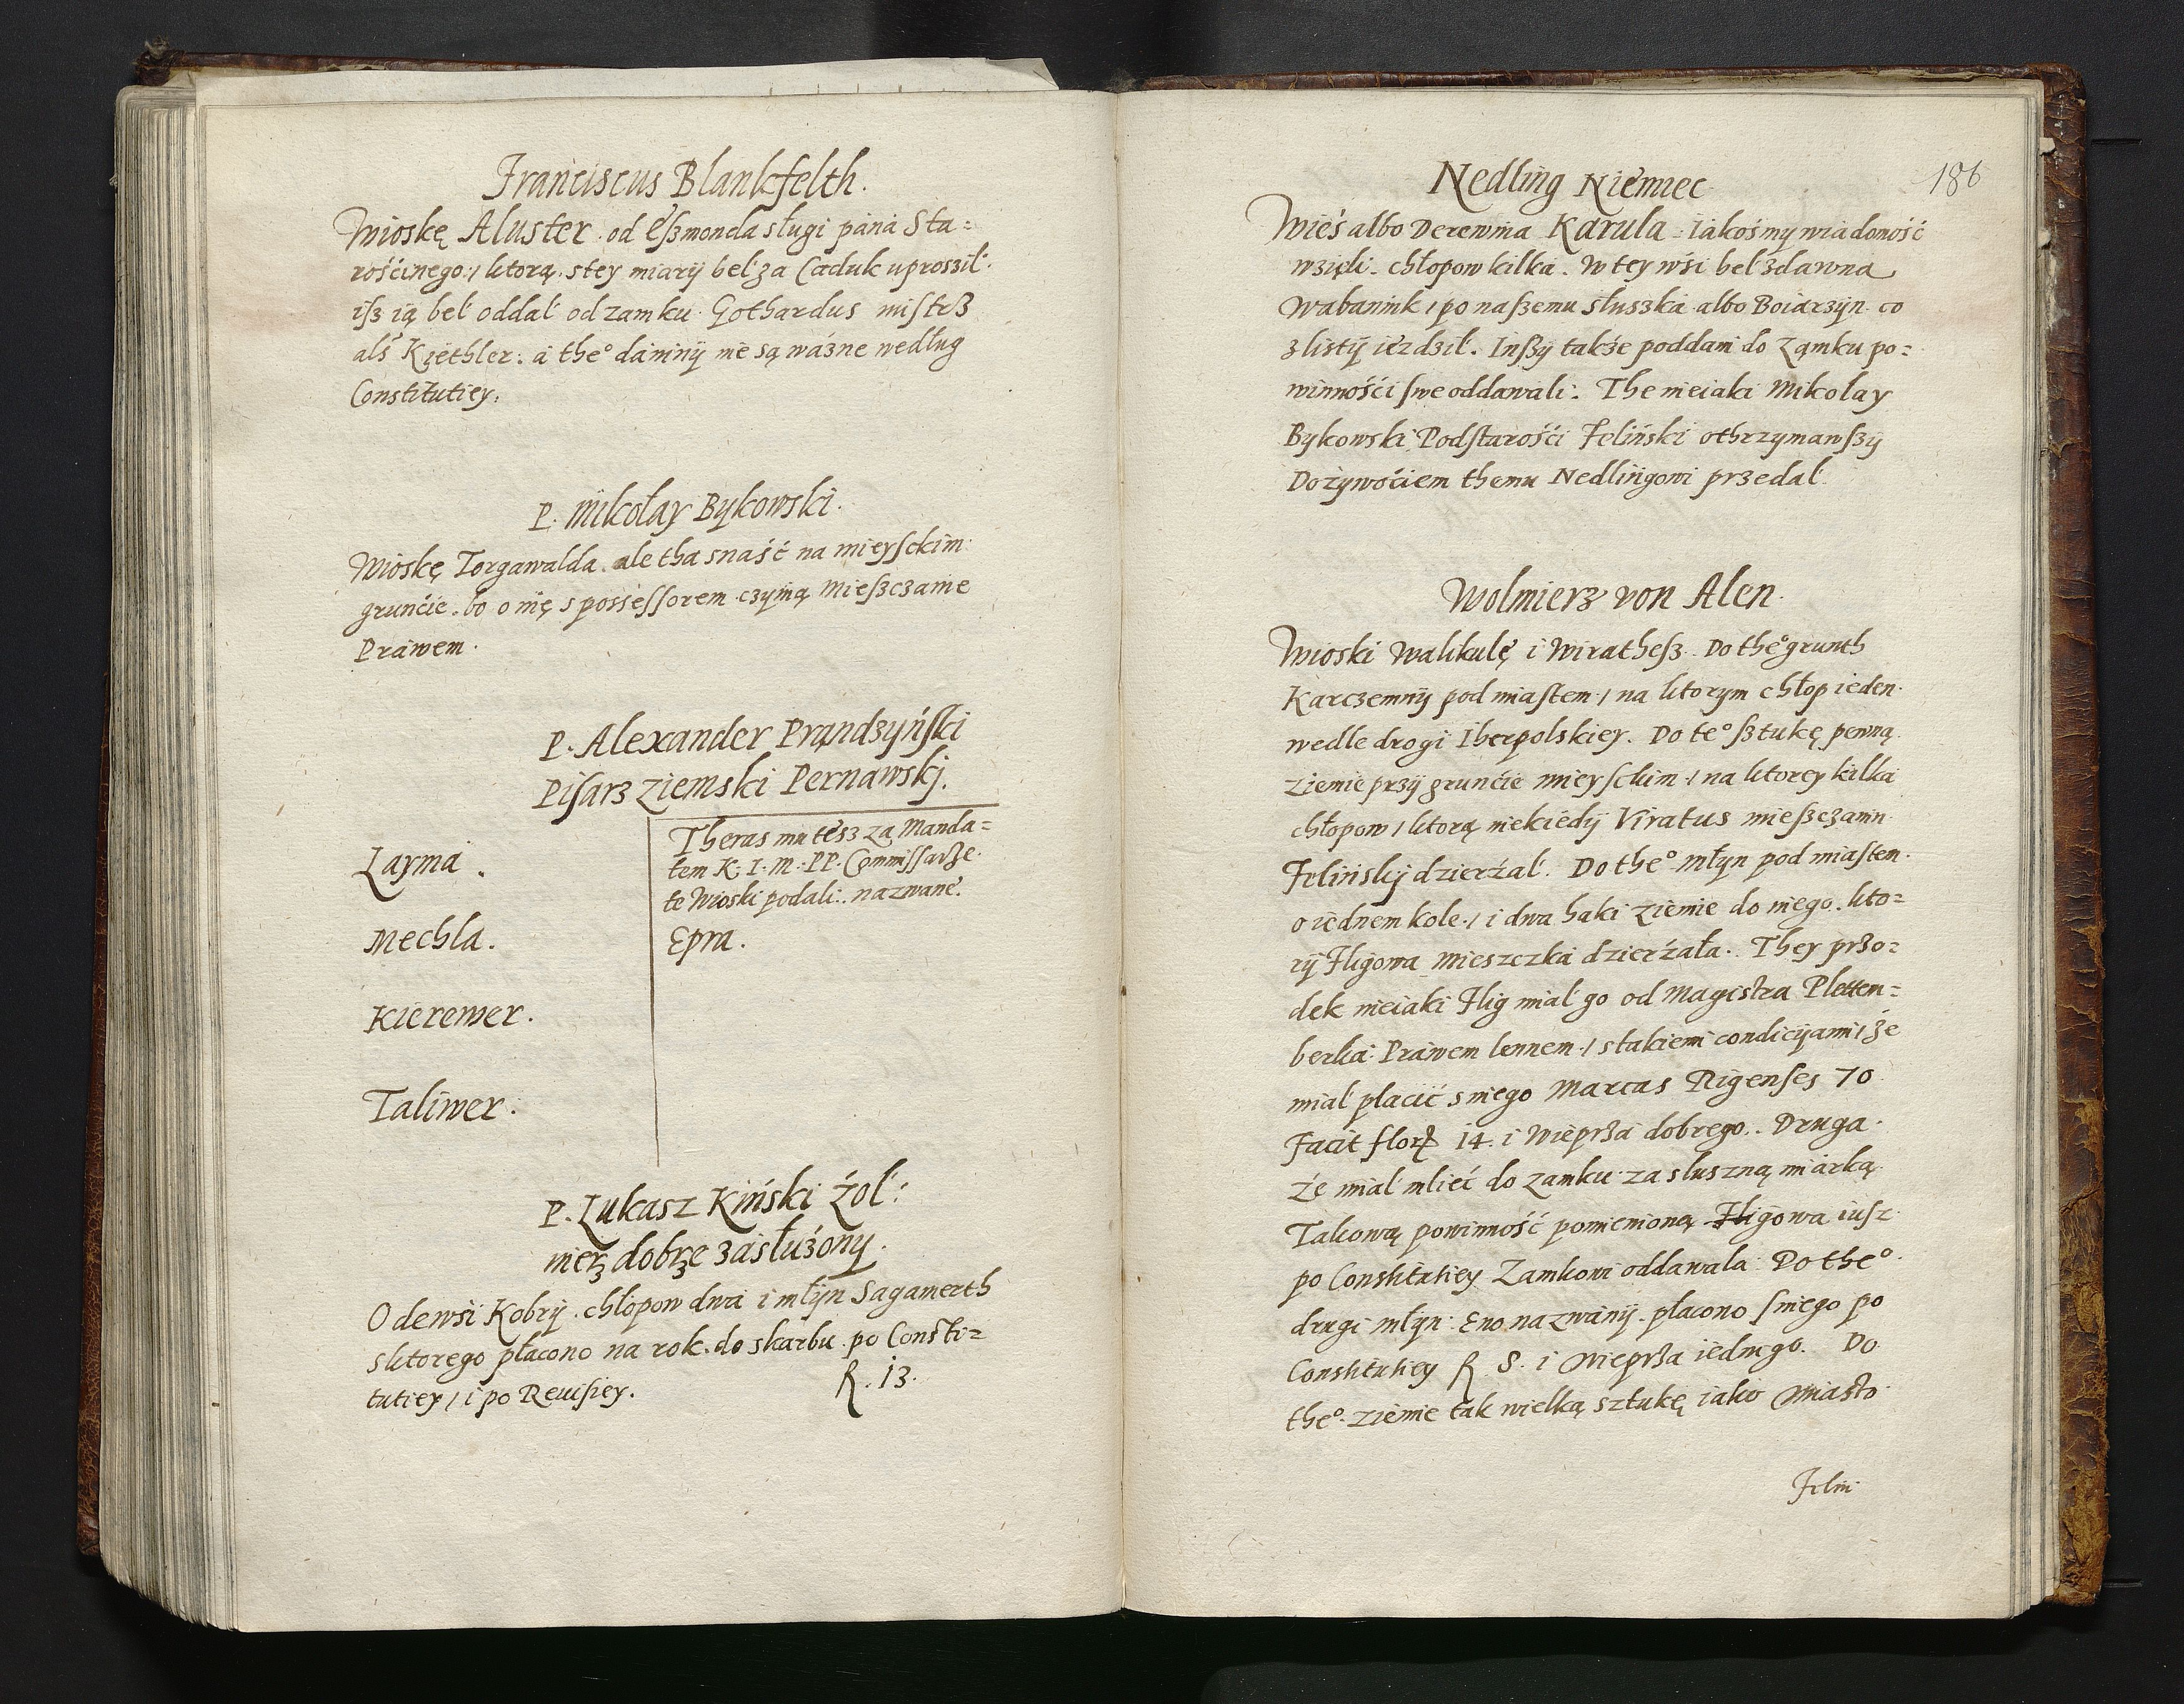 Franciscus Blankfelth.
Wioskę Aluster. od Eſzmonda sługi pana Sta=
rościnego, / ktorą. stey miary bel za Caduk uproszil.
iſz ią bel oddal od zamku. Gothardus miſtrz
als Kiethler: a the° daniny nie są ważne według
Constitutiey.
P. Mikołay Bykowski.
Wioskę Torgawalda. ale tha snaść na mieyſckim
grunćie. bo o nię s possesſorem czynią Mieſzczanie
Prawem.
P. Alexander Prądzyńſki
Piſarz ziemski Pernawskj.
Layma.
Mechla.
Kieremer.
Taliwer.
Theras mu tesz za Manda=
tem K. I. M. PP. Commiſſarze.
te Wioski podali. nazwane.
Epra.
P. Lukasz Kiński żol:
nierz dobrze zasłużony.
Odewsi Kobry. chłopow dwa i młyn Sagamerth
sktorego płacono na rok. do skarbu. po Consti=
tutiey, / i po Reuiſiey. R. 13.
186
Nedling Niemiec
Wieś albo Derewnia Karula. iakośmy wiadomość
wzięli. chłopow kilka. W tey wśi bel zdawna
Wabanink, / po naſzemu służka albo Boiarzyn. co
zlisty ieżdzil. Inſzy także poddani do Zamku po=
winnośći ſwe oddawali. The nieiaki Mikołay
Bykowski Podſtarośći Feliński othrzymawſzy
Dożywoćiem themu Nedlingowi przedal.
Wolmierz von Alen.
Wioski Walikulę i Wiratheſz. Do the° grunth
Karczemny pod miaſtem, / na ktorym chłop ieden.
wedle drogi Iberpolskiey. Do te° ſztukę pewną
ziemie przy grunćie mieyſckim, / na ktorey kilka
chłopow, / ktorą niekiedy Viratus mieſzczanin
Felińskj dzierżal. Do the° młyn pod miaſtem.
o iednem kole, / i dwa haki ziemie do niego. kto=
ry Fligowa mieszczka dzierżała. They przo=
dek nieiaki Flig mial go od Magistra Pletten=
berka Prawem lennem, / stakiemi condicyami, / że
mial placić s niego Marcas Rigenſes 70
Facit flor 14. i Wieprza dobrego. Druga.
że mial mlieć do zamku za słuszną miarką.
Takową powinność pomienioną Fligowa iuſz
po Constitutiey Zamkowi oddawala. Do the°.
drugi młyn: Eno nazwany. płacono ſniego po
Constitutiey R. 8. i Wieprza iednego. Do
the°. ziemie tak wielką sztukę iako Miasto
Felin